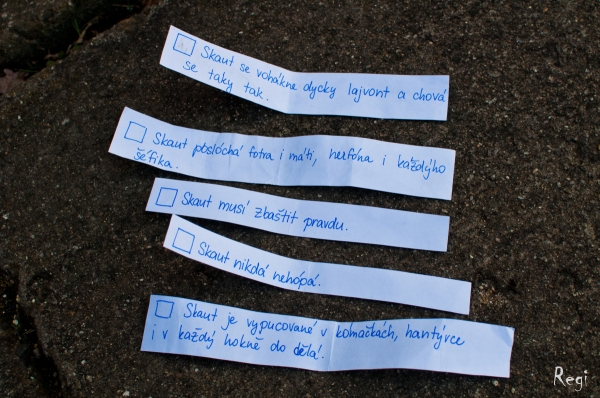 Skaut se vohákne dycky lajvont a chová
se taky tak.
Skaut poslóchá fotra i máti, herfóna i každýho
šéfika.
Skaut musí zbaštit pravdu.
Skaut nikdá nehópá.
Skaut je vypucované v kómačkách, hantýrce
i v každý hokně do děla!
Regi